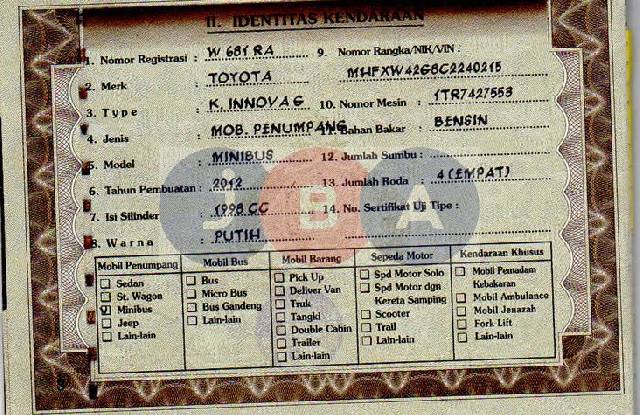 II. IDENTITAS KENDARAAN
1. Nomor Registrasi : W 681 RA 9. Nomor Rangka/NIK/VIN :
2. Merk : TOYOTA MHFXW42G8C2240215
3. Type : K. INNOVA G 10. Nomor Mesin : 1TR7427553
4. Jenis : MOB. PENUMPANG 11. Bahan Bakar : BENSIN
5. Model : MINIBUS 12. Jumlah Sumbu :
6. Tahun Pembuatan : 2012 13. Jumlah Roda : 4 (EMPAT)
7. Isi Silinder : 1998 CC 14. No. Sertifikat Uji Tipe :
8. Warna : PUTIH
2BA
Mobil Penumpang
Sedan
St. Wagon
Minibus
Jeep
Lain-lain
Mobil Bus
Bus
Micro Bus
Bus Gandeng
Lain-lain
Mobil Barang
Pick Up
Deliver Van
Truk
Tangki
Double Cabin
Trailer
Lain-lain
Sepeda Motor
Spd Motor Solo
Spd Motor dgn
Kereta Samping
Scooter
Trail
Lain-lain
Kendaraan Khusus
Mobil Pemadam
Kebakaran
Mobil Ambulance
Mobil Jenazah
Fork Lift
Lain-lain